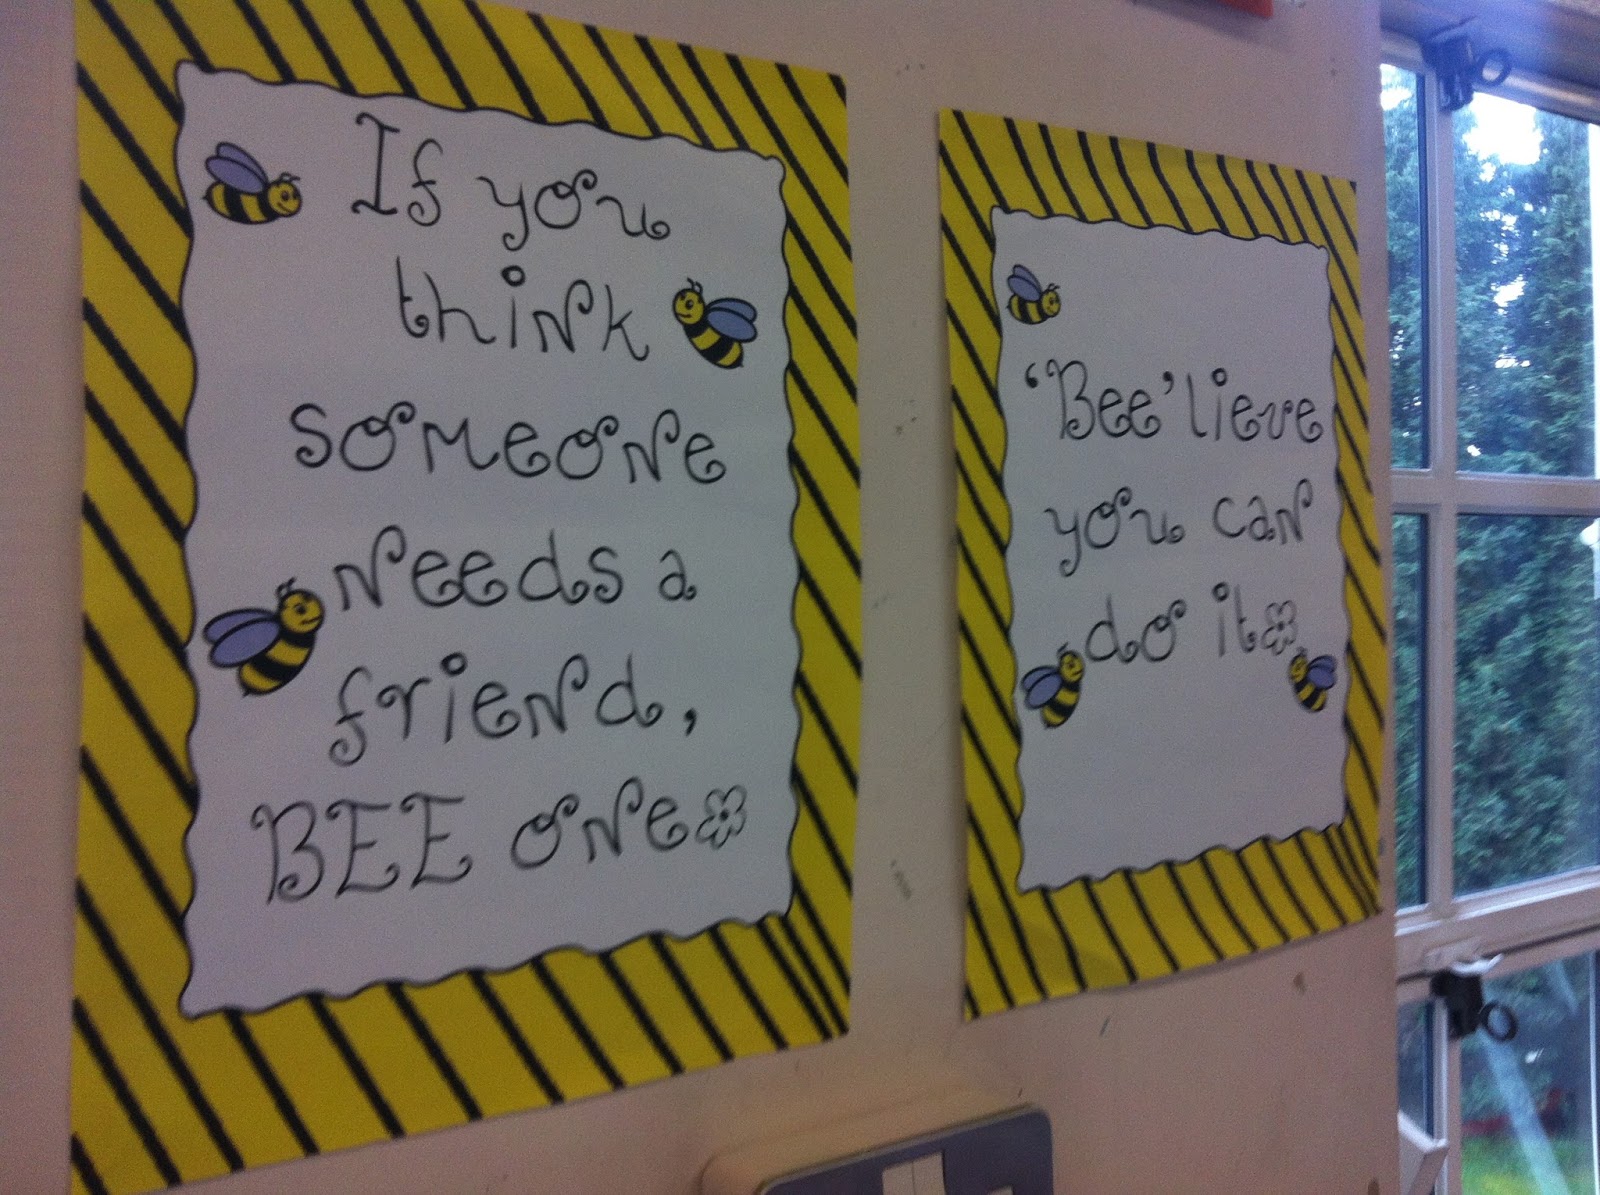 If you
think
someone
needs a
friend,
BEE one
'Bee'lieve
you can
do it